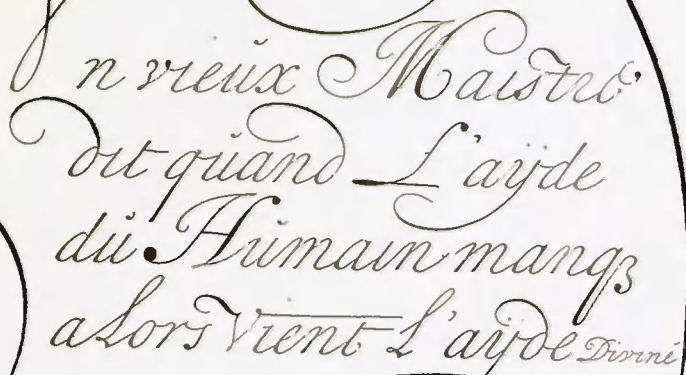 n vieux Maistre
dit quand L'ayde
du Humain manqȝ
alors vient L'ayde Divine